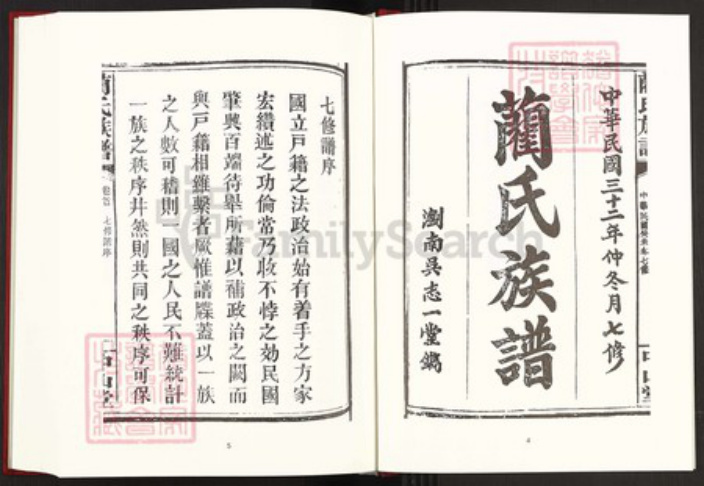 藺氏族譜
中華民國癸未七修
中華民國三十二年仲冬月七修
藺氏族譜
瀏南吳志一堂鐫
4
七修譜序
國立戶籍之法政治始有着手之方家
宏纘述之功倫常乃收不悖之効民國
肇興百端待舉所藉以補政治之闕而
與戶籍相維繫者厥惟譜牒蓋以一族
之人數可稽則一國之人民不難統計
一族之秩序井然則共同之秩序可保
藺氏族譜
卷首 七修譜序
5
FamilySearch